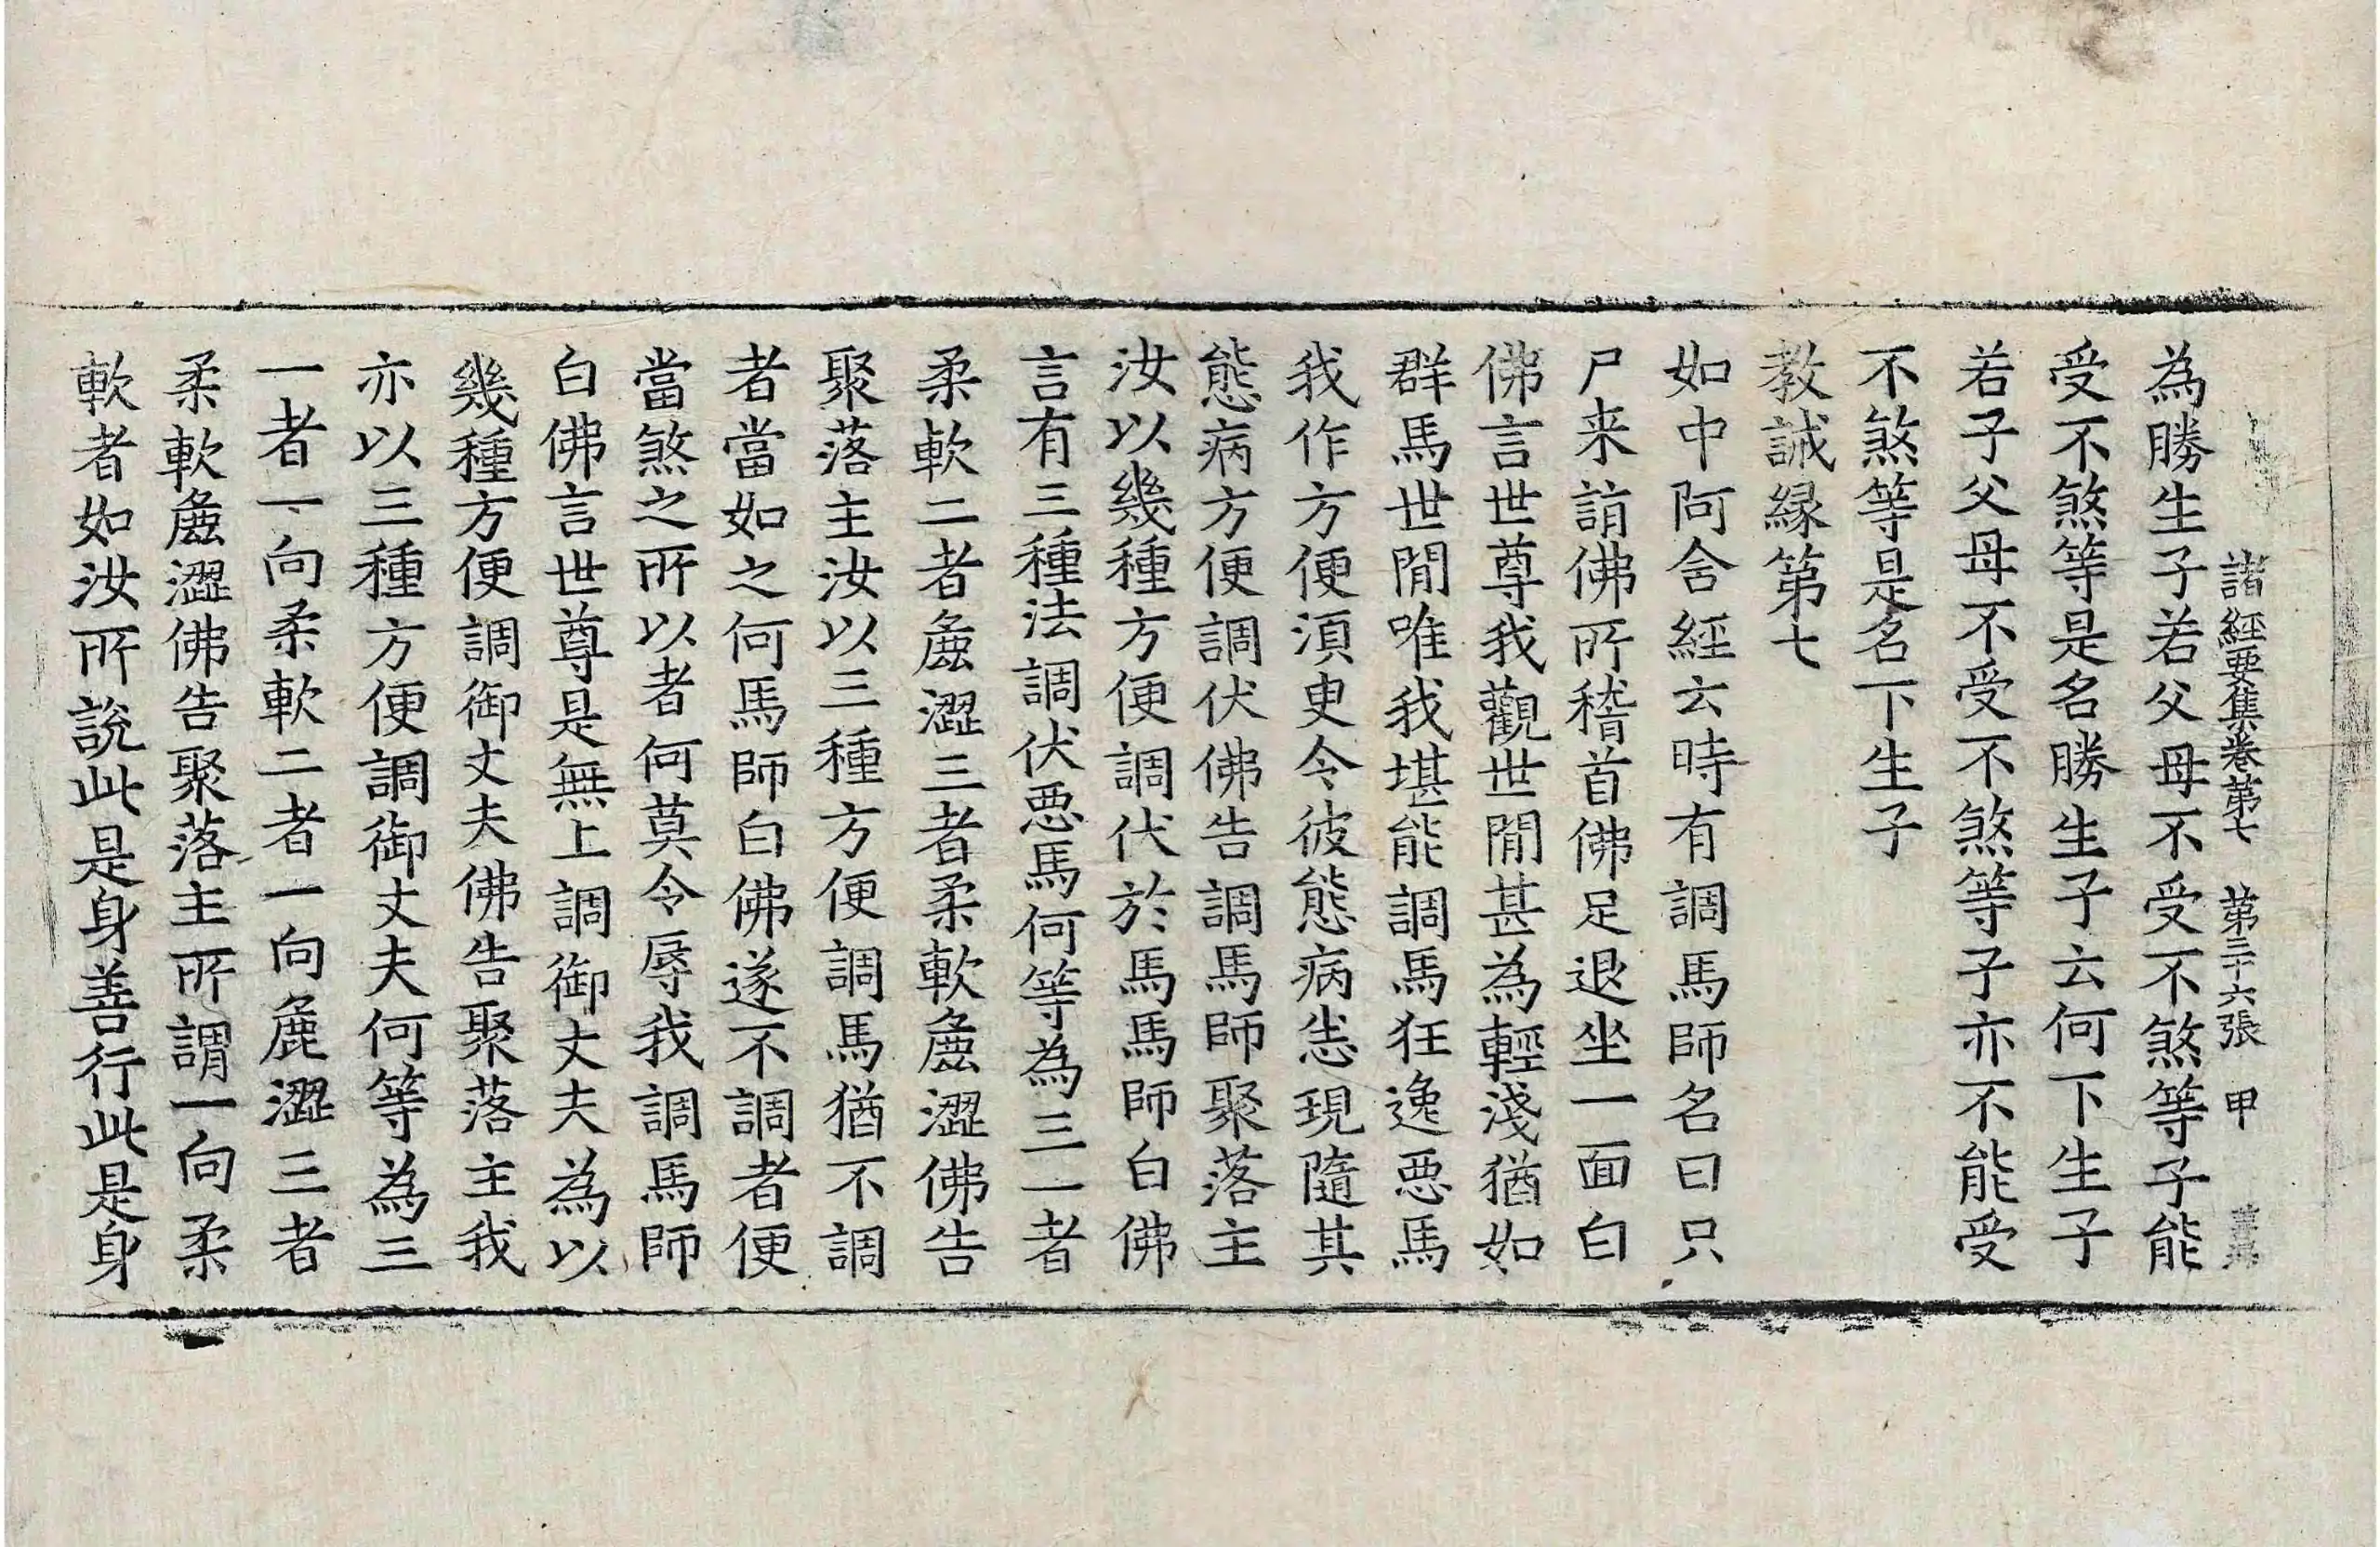 諸經要集卷第七 第三十六張 甲
為勝生子若父母不受不煞等子能
受不煞等是名勝生子云何下生子
若子父母不受不煞等子亦不能受
不煞等是名下生子
教誡縁第七
如中阿含經云時有調馬師名曰只
尸来詣佛所稽首佛足退坐一面白
佛言世尊我觀世閒甚為輕淺猶如
群馬世閒唯我堪能調馬狂逸惡馬
我作方便湏臾令彼態病恙現隨其
態病方便調伏佛告調馬師聚落主
汝以幾種方便調伏於馬馬師白佛
言有三種法調伏惡馬何等為三一者
柔軟二者麁澀三者柔軟麁澀佛告
聚落主汝以三種方便調馬猶不調
者當如之何馬師白佛遂不調者便
當煞之所以者何莫令辱我調馬師
白佛言世尊是無上調御丈夫為以
幾種方便調御丈夫佛告聚落主我
亦以三種方便調御丈夫何等為三
一者一向柔軟二者一向麁澀三者
柔軟麁澀佛告聚落主所謂一向柔
軟者如汝所說此是身善行此是身